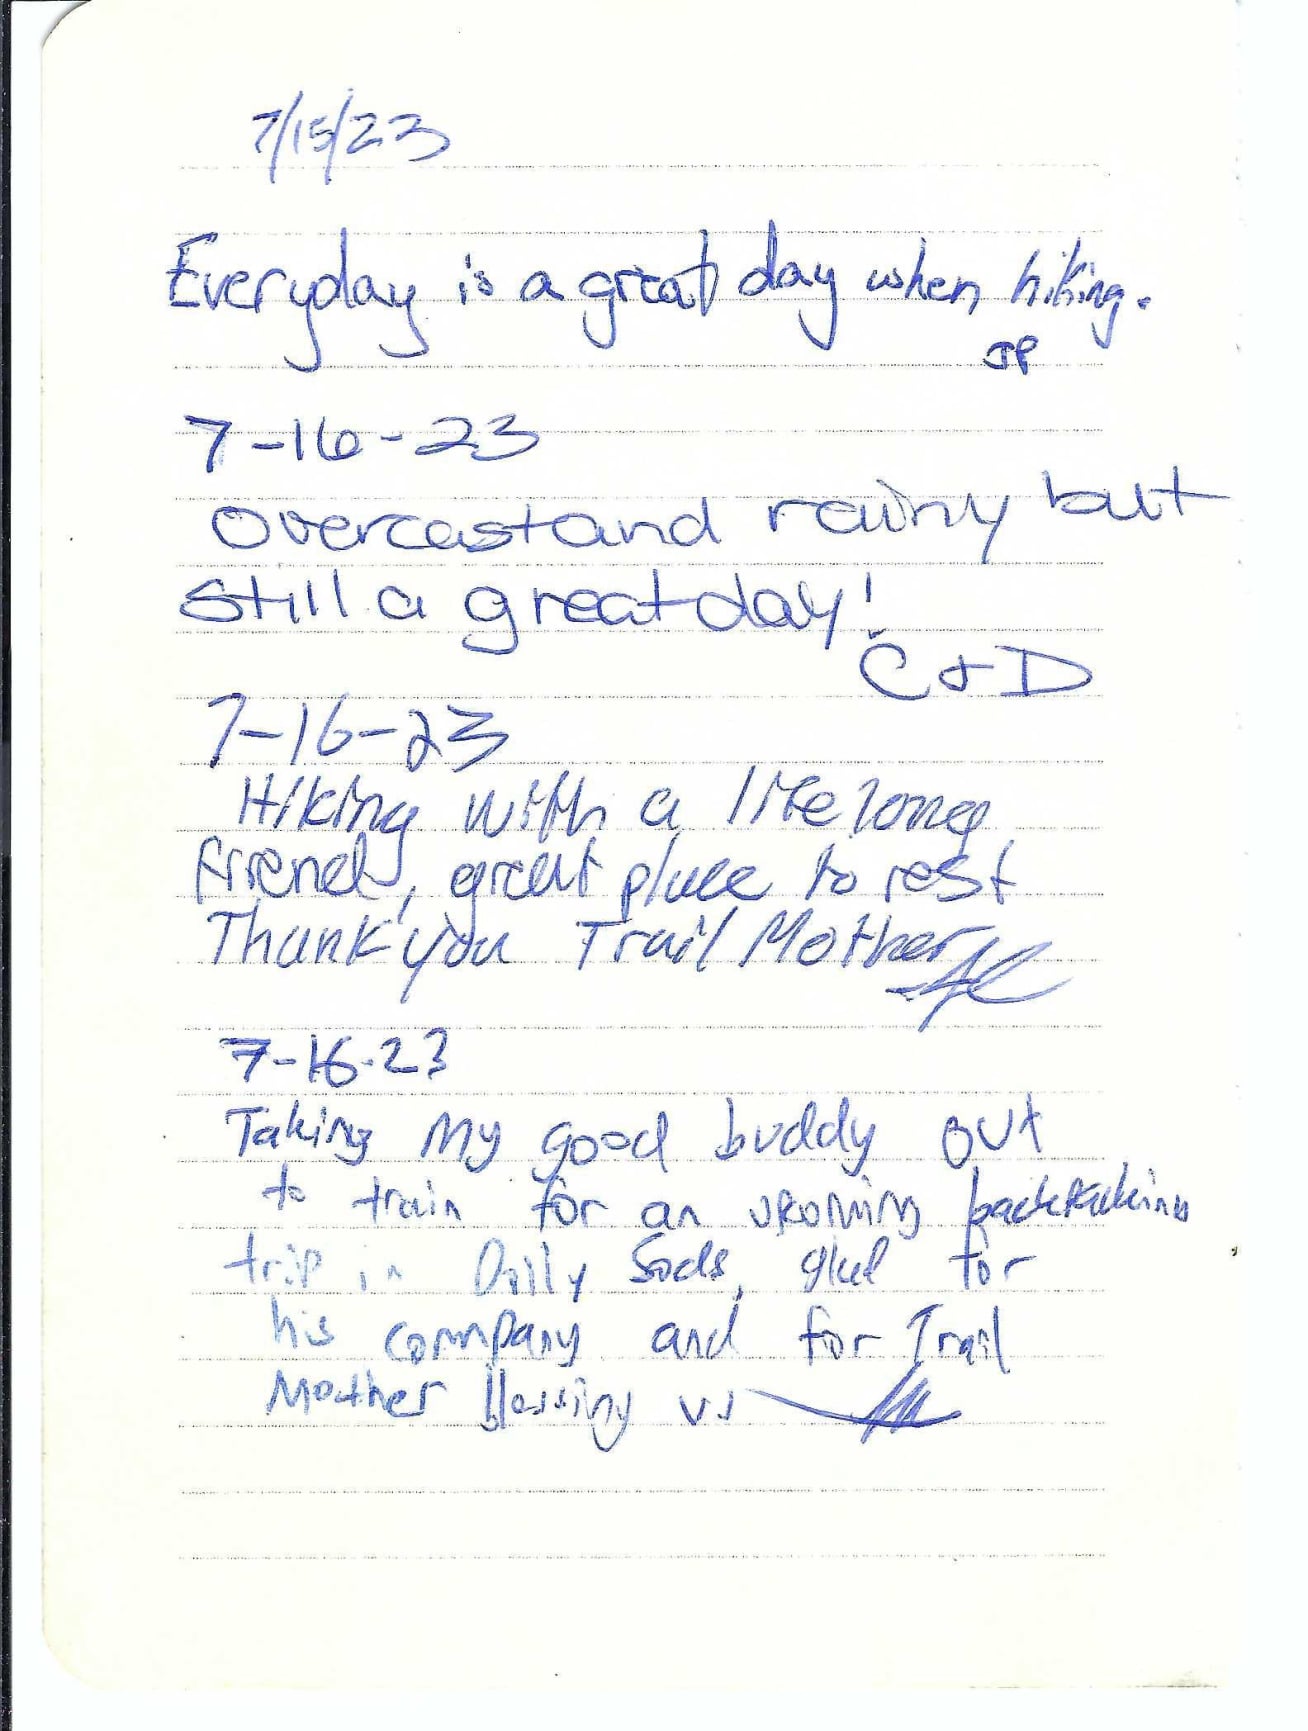 7/15/23
Everyday is a great day when hiking.
JP
7-16-23
Overcast and rainy but
still a great day!
C & D
7-16-23
Hiking with a life long
friend, great place to rest
Thank you Trail Mother
7-16-23
Taking My good buddy out
to train for an upcoming backpacking
trip in Dolly Sods, glad for
his company and for Trail
Mother blessing us